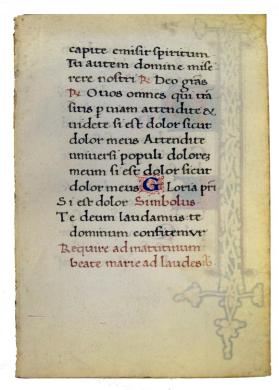 capite emisit spiritum
Tu autem domine mise
rere nostri ℟ Deo grãs
℟ O vos omnes qui trã
sitis p viam attendite &
videte si est dolor sicut
dolor meus Attendite
universi populi dolorez
meum si est dolor sicut
dolor meus Gloria pri
Si est dolor Simbolus
Te deum laudamus te
dominum confitemur
Require ad matutinum
beate marie ad laudes